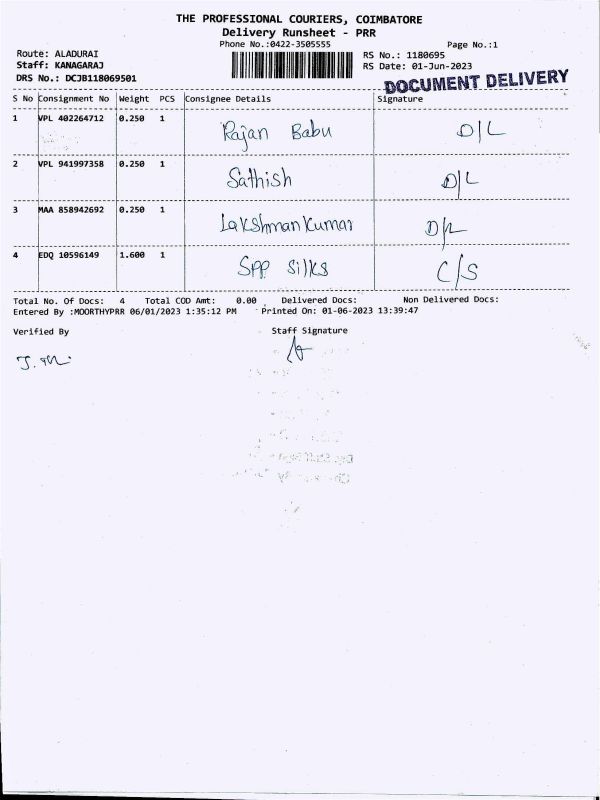 THE PROFESSIONAL COURIERS, COIMBATORE
Delivery Runsheet - PRR
Phone No.:0422-3505555
Page No.:1
Route: ALADURAI
RS No.: 1180695
Staff: KANAGARAJ
RS Date: 01-Jun-2023
DRS No.: DCJB118069501
DOCUMENT DELIVERY
S No Consignment No Weight PCS Consignee Details Signature
1 VPL 402264712 0.250 1 Rajan Babu D/L
2 VPL 941997358 0.250 1 Sathish D/L
3 MAA 858942692 0.250 1 Lakshman Kumar D/L
4 EDQ 10596149 1.600 1 SPP Silks C/S
Total No. Of Docs: 4 Total COD Amt: 0.00 Delivered Docs: Non Delivered Docs:
Entered By :MOORTHYPRR 06/01/2023 1:35:12 PM Printed On: 01-06-2023 13:39:47
Verified By Staff Signature